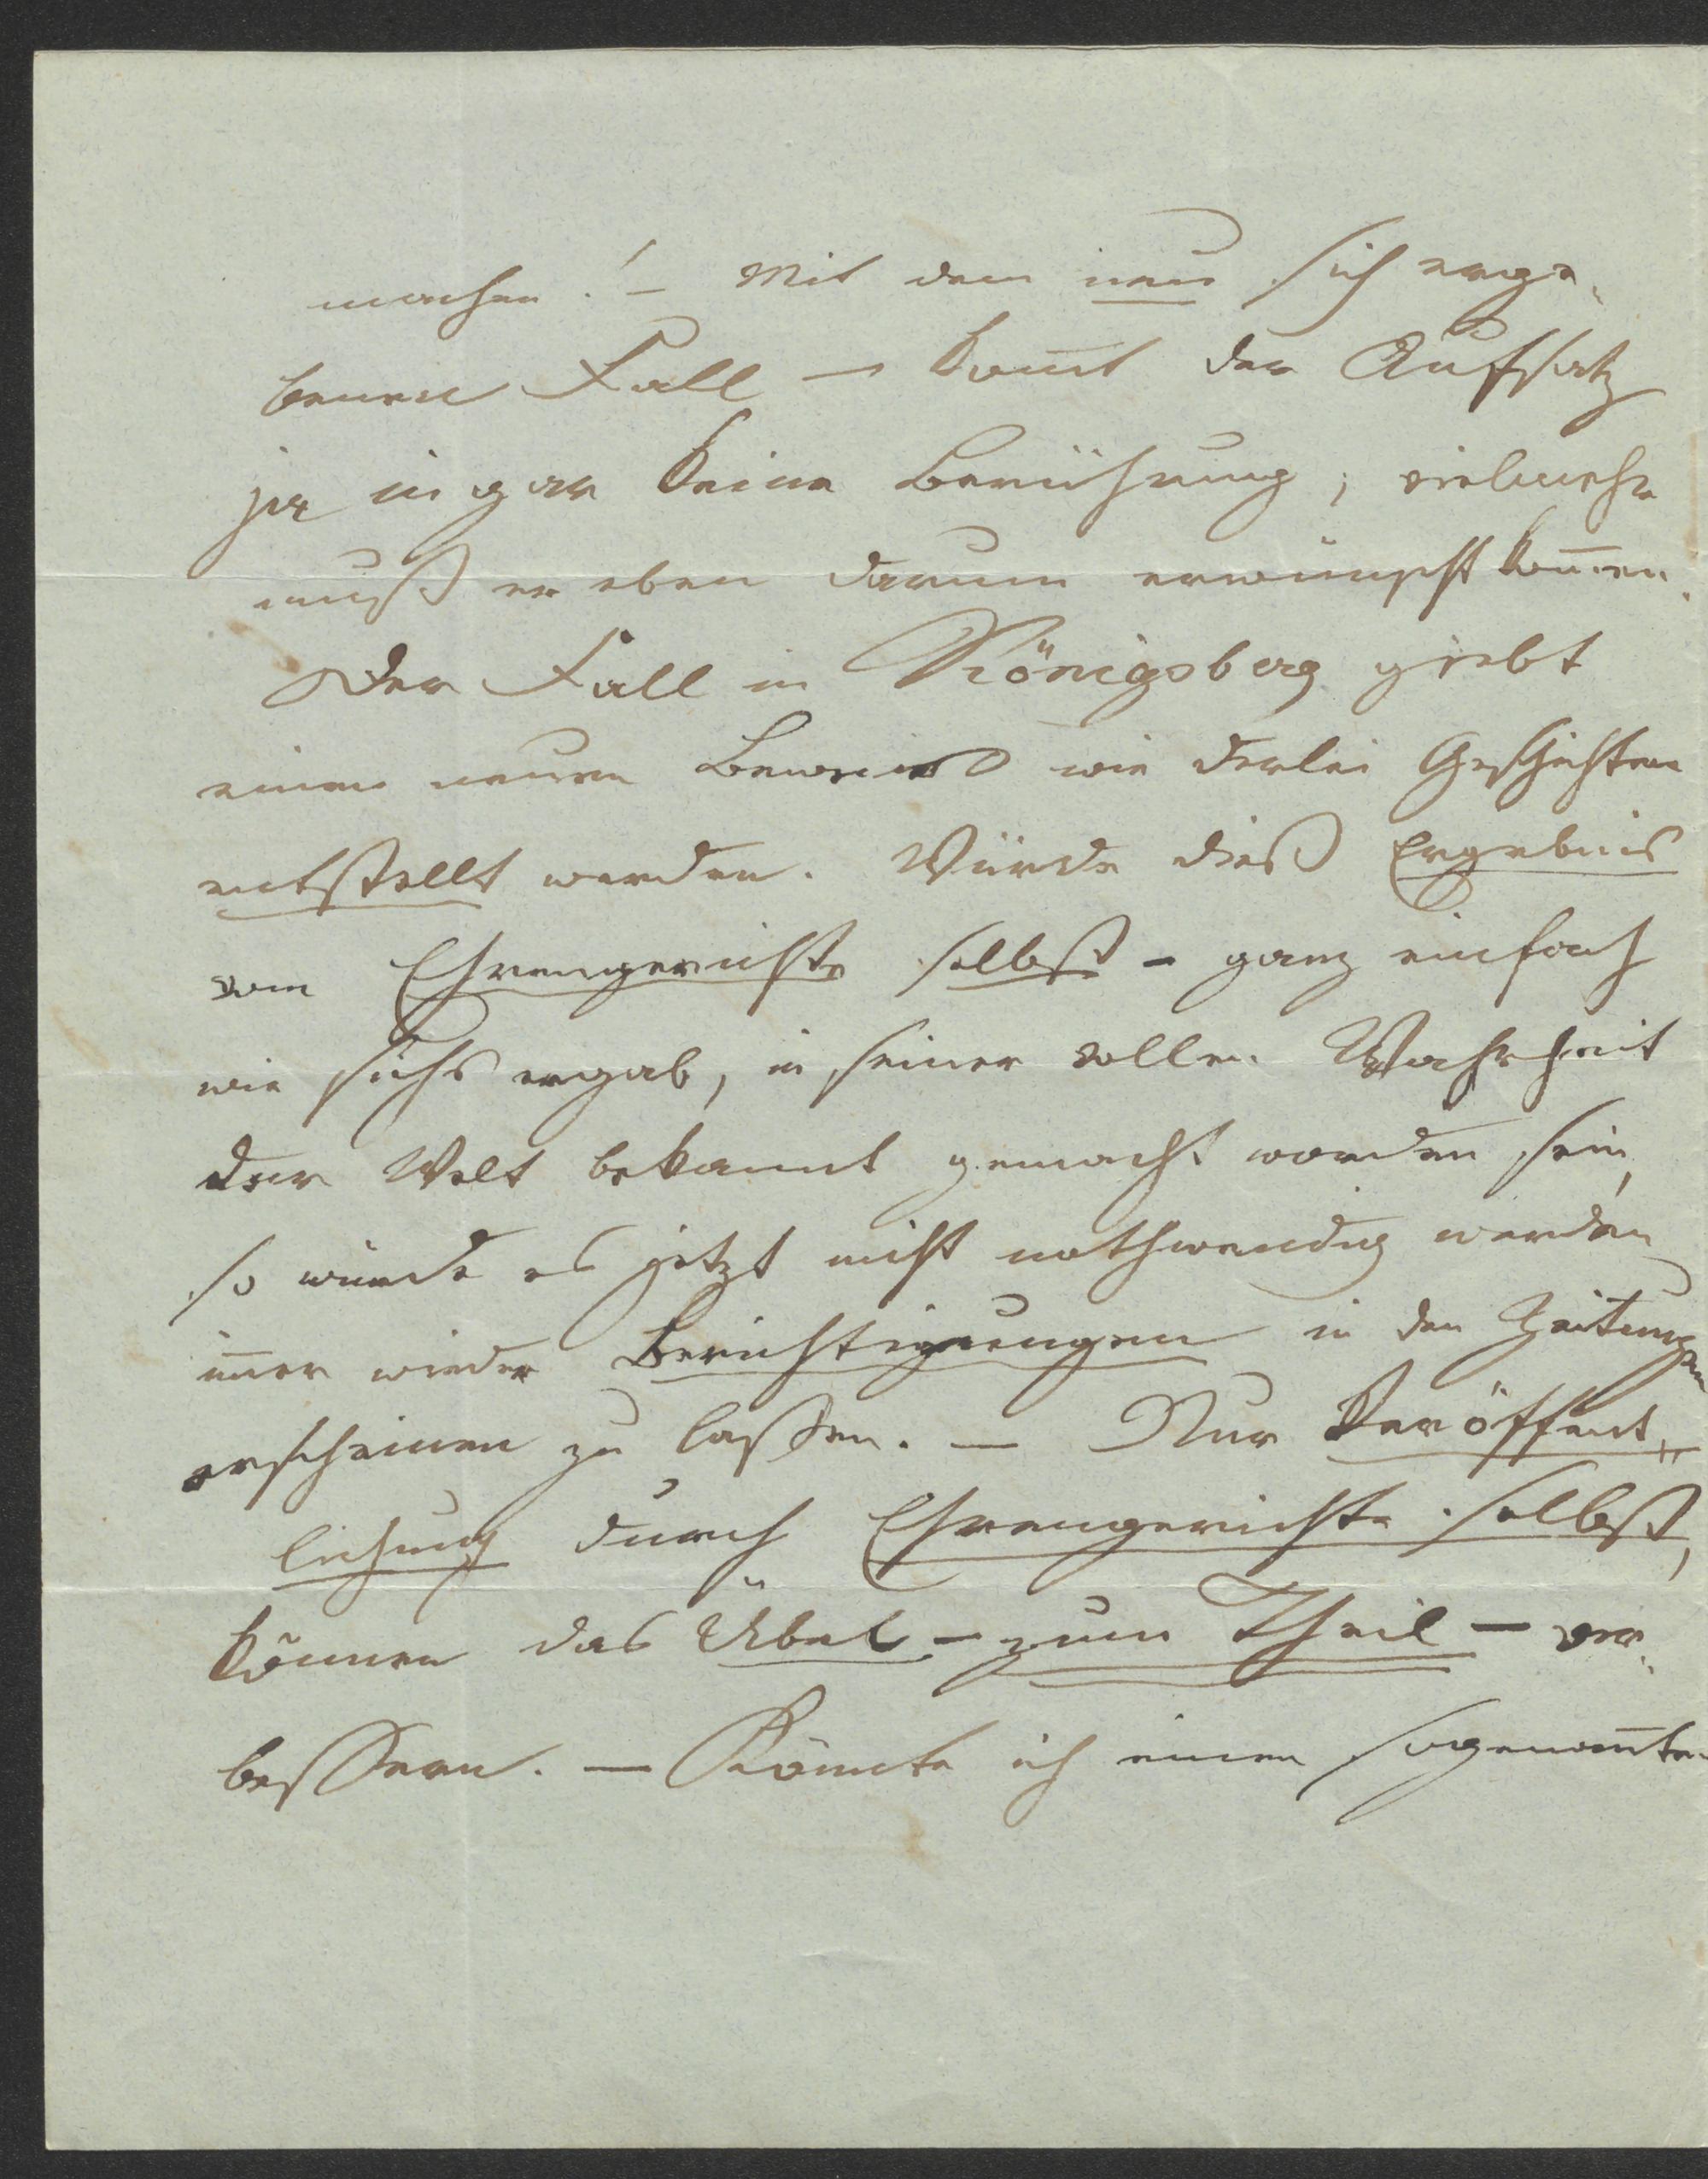 machen! – Mit dem neu sich erge-
benen Fall – kom̄t der Aufsatz
ja in gar keine Berührung; vielmehr
muß er eben darum erwünscht kom̄en.
Der Fall in Königsberg giebt
einen neuen Beweis wie derlei Geschichten
entstellt werden. Würde dieß Ergebnis
vom Ehrengerichte selbst – ganz einfach
wie sichs ergab, in seiner vollen Wahrheit
der Welt bekannt gemacht worden sein,
so würde es jetzt nicht nothwendig werden
im̄er wieder Berichtigungen in den Zeitungen
erscheinen zu lassen. – Nur Veröffent-
lichung durch Ehrengerichte selbst,
können das Übel – zum Theil – ver-
bessern. – Könnte ich einen sogenan̄ten